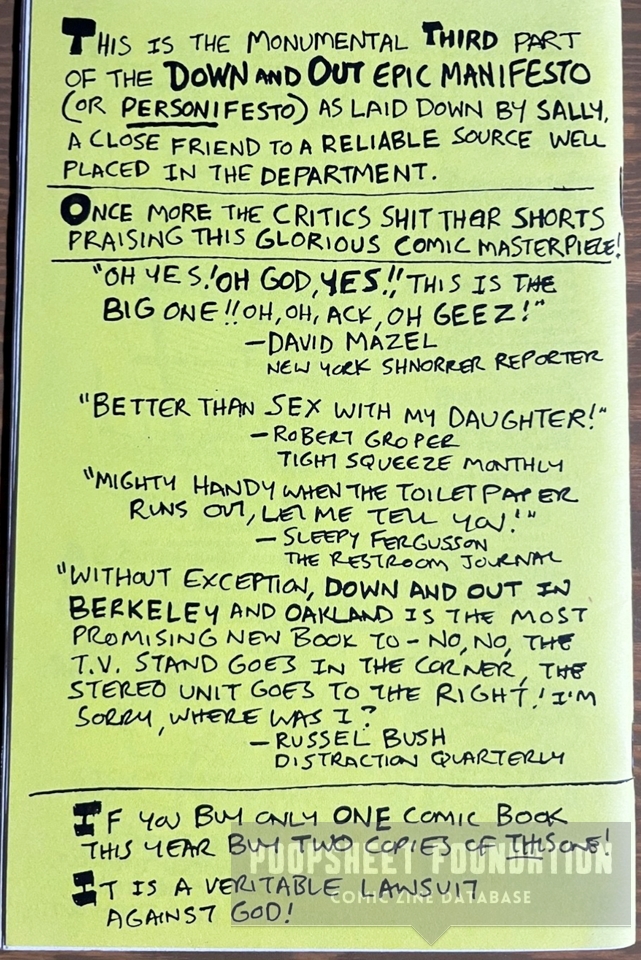 THIS IS THE MONUMENTAL THIRD PART
OF THE DOWN AND OUT EPIC MANIFESTO
(OR PERSONIFESTO) AS LAID DOWN BY SALLY,
A CLOSE FRIEND TO A RELIABLE SOURCE WELL
PLACED IN THE DEPARTMENT.
ONCE MORE THE CRITICS SHIT THEIR SHORTS
PRAISING THIS GLORIOUS COMIC MASTERPIECE!
"OH YES! OH GOD, YES!! THIS IS THE
BIG ONE!! OH, OH, ACK, OH GEEZ!"
—DAVID MAZEL
NEW YORK SHNORRER REPORTER
"BETTER THAN SEX WITH MY DAUGHTER!"
—ROBERT GROPER
TIGHT SQUEEZE MONTHLY
"MIGHTY HANDY WHEN THE TOILET PAPER
RUNS OUT, LET ME TELL YOU!"
—SLEEPY FERGUSSON
THE RESTROOM JOURNAL
"WITHOUT EXCEPTION, DOWN AND OUT IN
BERKELEY AND OAKLAND IS THE MOST
PROMISING NEW BOOK TO - NO, NO, THE
T.V. STAND GOES IN THE CORNER, THE
STEREO UNIT GOES TO THE RIGHT! I'M
SORRY, WHERE WAS I?
—RUSSEL BUSH
DISTRACTION QUARTERLY
IF YOU BUY ONLY ONE COMIC BOOK
THIS YEAR BUY TWO COPIES OF THIS ONE!
IT IS A VERITABLE LAWSUIT
AGAINST GOD!
POOPSHEET FOUNDATION
COMIC ZINE DATABASE